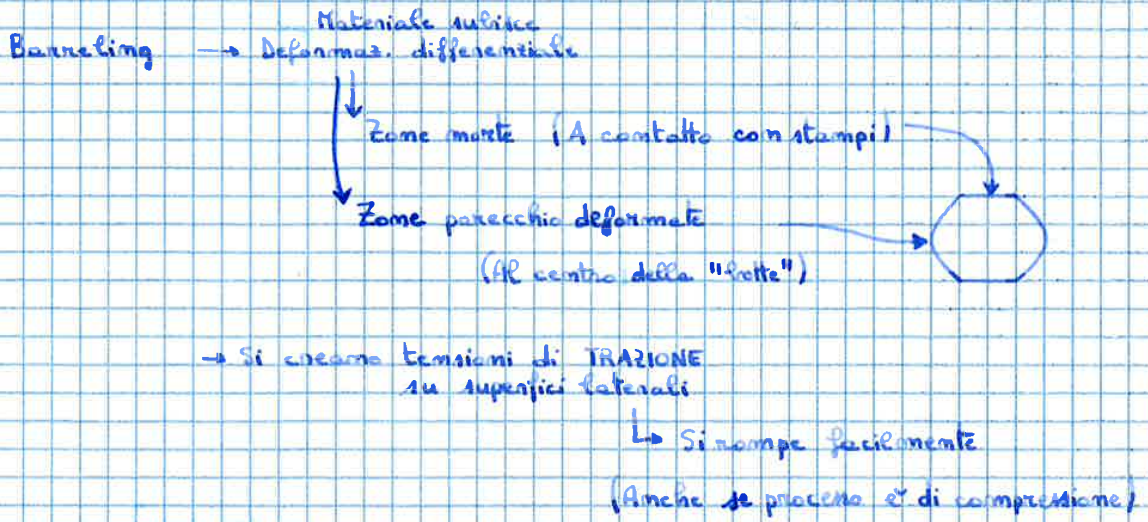 Materiale subisce
Barreling → Deformaz. differenziale
Zone morte (A contatto con stampi)
Zone parecchio deformate
(Al centro della "botte")
→ Si creano tensioni di TRAZIONE
su superfici laterali
↳ Si rompe facilmente
(Anche se processo è di compressione)